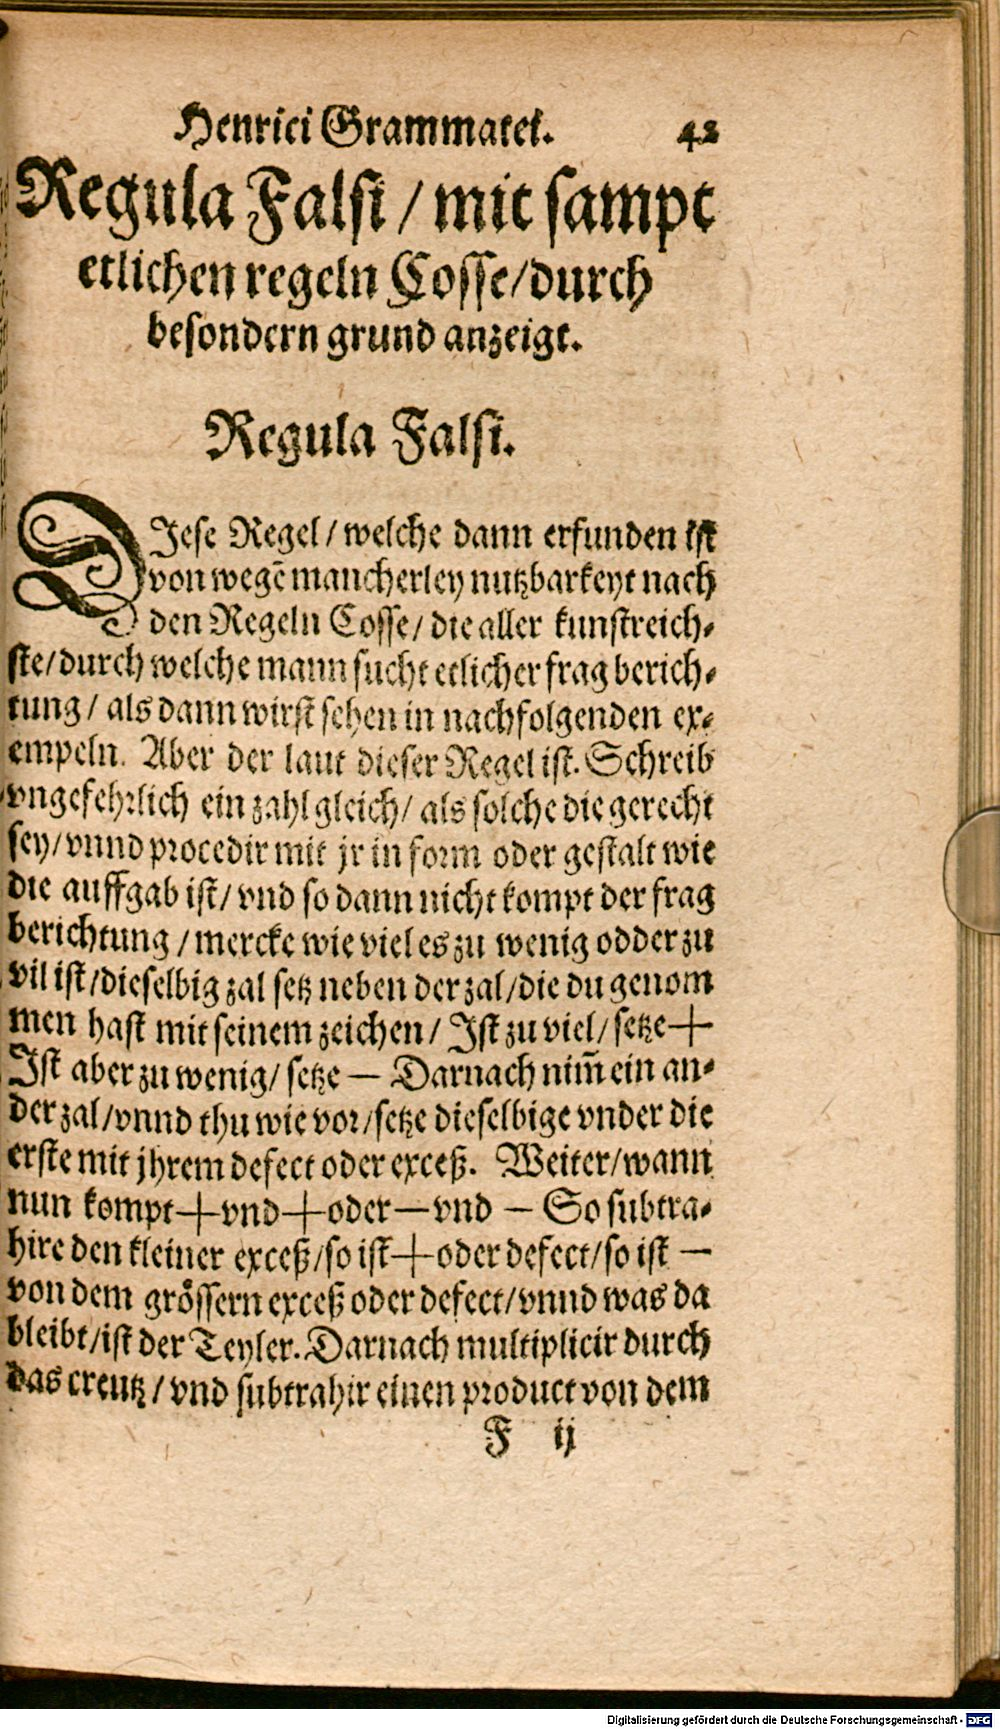 Henrici Grammatei. 42
Regula Falsi / mit sampt
etlichen regeln Cosse / durch
besondern grund anzeigt.
Regula Falsi.
DIese Regel / welche dann erfunden ist
von wegē mancherley nutzbarkeyt nach
den Regeln Cosse / die aller kunstreich-
ste / durch welche mann sucht etlicher frag berich-
tung / als dann wirst sehen in nachfolgenden ex-
empeln. Aber der laut dieser Regel ist. Schreib
vngefehrlich ein zahl gleich / als solche die gerecht
sey / vnnd procedir mit jr in form oder gestalt wie
die auffgab ist / vnd so dann nicht kompt der frag
berichtung / mercke wie viel es zu wenig odder zu
vil ist / dieselbig zal setz neben der zal / die du genom
men hast mit seinem zeichen / Ist zu viel / setze +
Ist aber zu wenig / setze — Darnach nim̄ ein an-
der zal / vnnd thu wie vor / setze dieselbige vnder die
erste mit jhrem defect oder exceß. Weiter / wann
nun kompt + vnd + oder — vnd — So subtra-
hire den kleiner exceß / so ist + oder defect / so ist —
von dem grössern exceß oder defect / vnnd was da
bleibt / ist der Teyler. Darnach multiplicir durch
das creutz / vnd subtrahir einen product von dem
F ij
Digitalisierung gefördert durch die Deutsche Forschungsgemeinschaft - DFG